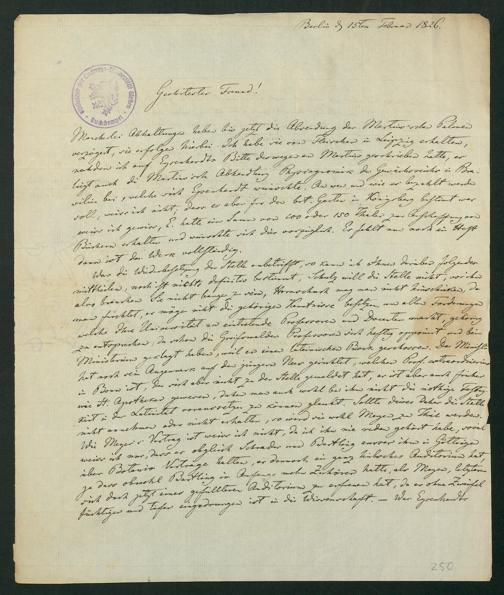 Berlin d 15ten Februar 1826.
Geehrtester Freund!
Mancherlei Abhaltungen haben bis jetzt die Absendung der Martius'schen Palmen
verzögert, sie erfolgen hierbei. Ich habe sie von Fleischer in Leipzig erhalten,
nachdem ich auf Eysenhardts Bitte deswegen an Martius geschrieben hatte, es
liegt auch die Martius'sche Abhandlung Physiognomie des Gewächsreichs in Bra-
silien bei, welche sich Eysenhardt wünschte. An wen und wie es bezahlt werden
soll, weiss ich nicht, dass es aber für den bot. Garten in Königsberg bestimmt war
weiss ich gewiss, E. hatte eine Summe von 100 oder 150 Thaler zur Anschaffung von
Büchern erhalten und wünschte sich dies vorzüglich. Es fehlt nur noch ein Heft
dann ist das Werk vollständig.
Was die Wiederbesetzung der Stelle anbetrifft, so kann ich Ihnen darüber folgendes
mittheilen, noch ist nichts definitiv bestimmt, Schulz will die Stelle nicht, wir
also brauchen Sie nicht bange zu sein, Hornschuch mag man nicht hinschicken, da
man fürchtet, er möge nicht die gehörigen Kenntnisse besitzen um allen Forderungen
welche Ihre Universität an eintretende Professoren und Docenten macht, gehörig
zu entsprechen, da schon die Greifswalder Professoren sich heftig opponirt und beim
Ministerium geklagt haben, weil er einen lateinischen Bock geschossen. Der Minister
hat noch ein Augenmerk auf den jüngern Nees gerichtet, welcher Prof. extraordinarius
in Bonn ist, da sich aber nicht zu der Stelle gemeldet hat, er ist aber auch früher
wie Apotheker gewesen, daher man auch wohl bei ihm nicht die nöthige Fertig-
keit in der Latinität voraussetzen zu können glaubt. Sollte dieser daher die Stelle
nicht annehmen oder nicht erhalten, so wird sie wohl Meyer zu Theil werden.
Wie Meyer's Vortrag ist weiss ich nicht, da ich ihn nie reden gehört habe, soviel
weiss ich nur, dass er obgleich Schrader und Bartling ausser ihm in Göttingen
über Botanik Vorträge halten, er dennoch ein ganz hübsches Auditorium hat,
ja dass obwohl Bartling im Anfange mehr Zuhörer hatte, als Meyer, letzterer
sich doch jetzt eines gefüllteren Auditorium zu erfreuen hat, da er ohne Zweifel
tüchtiger und tiefer eingedrungen ist in die Wissenschaft. — Was Eysenhardts
250